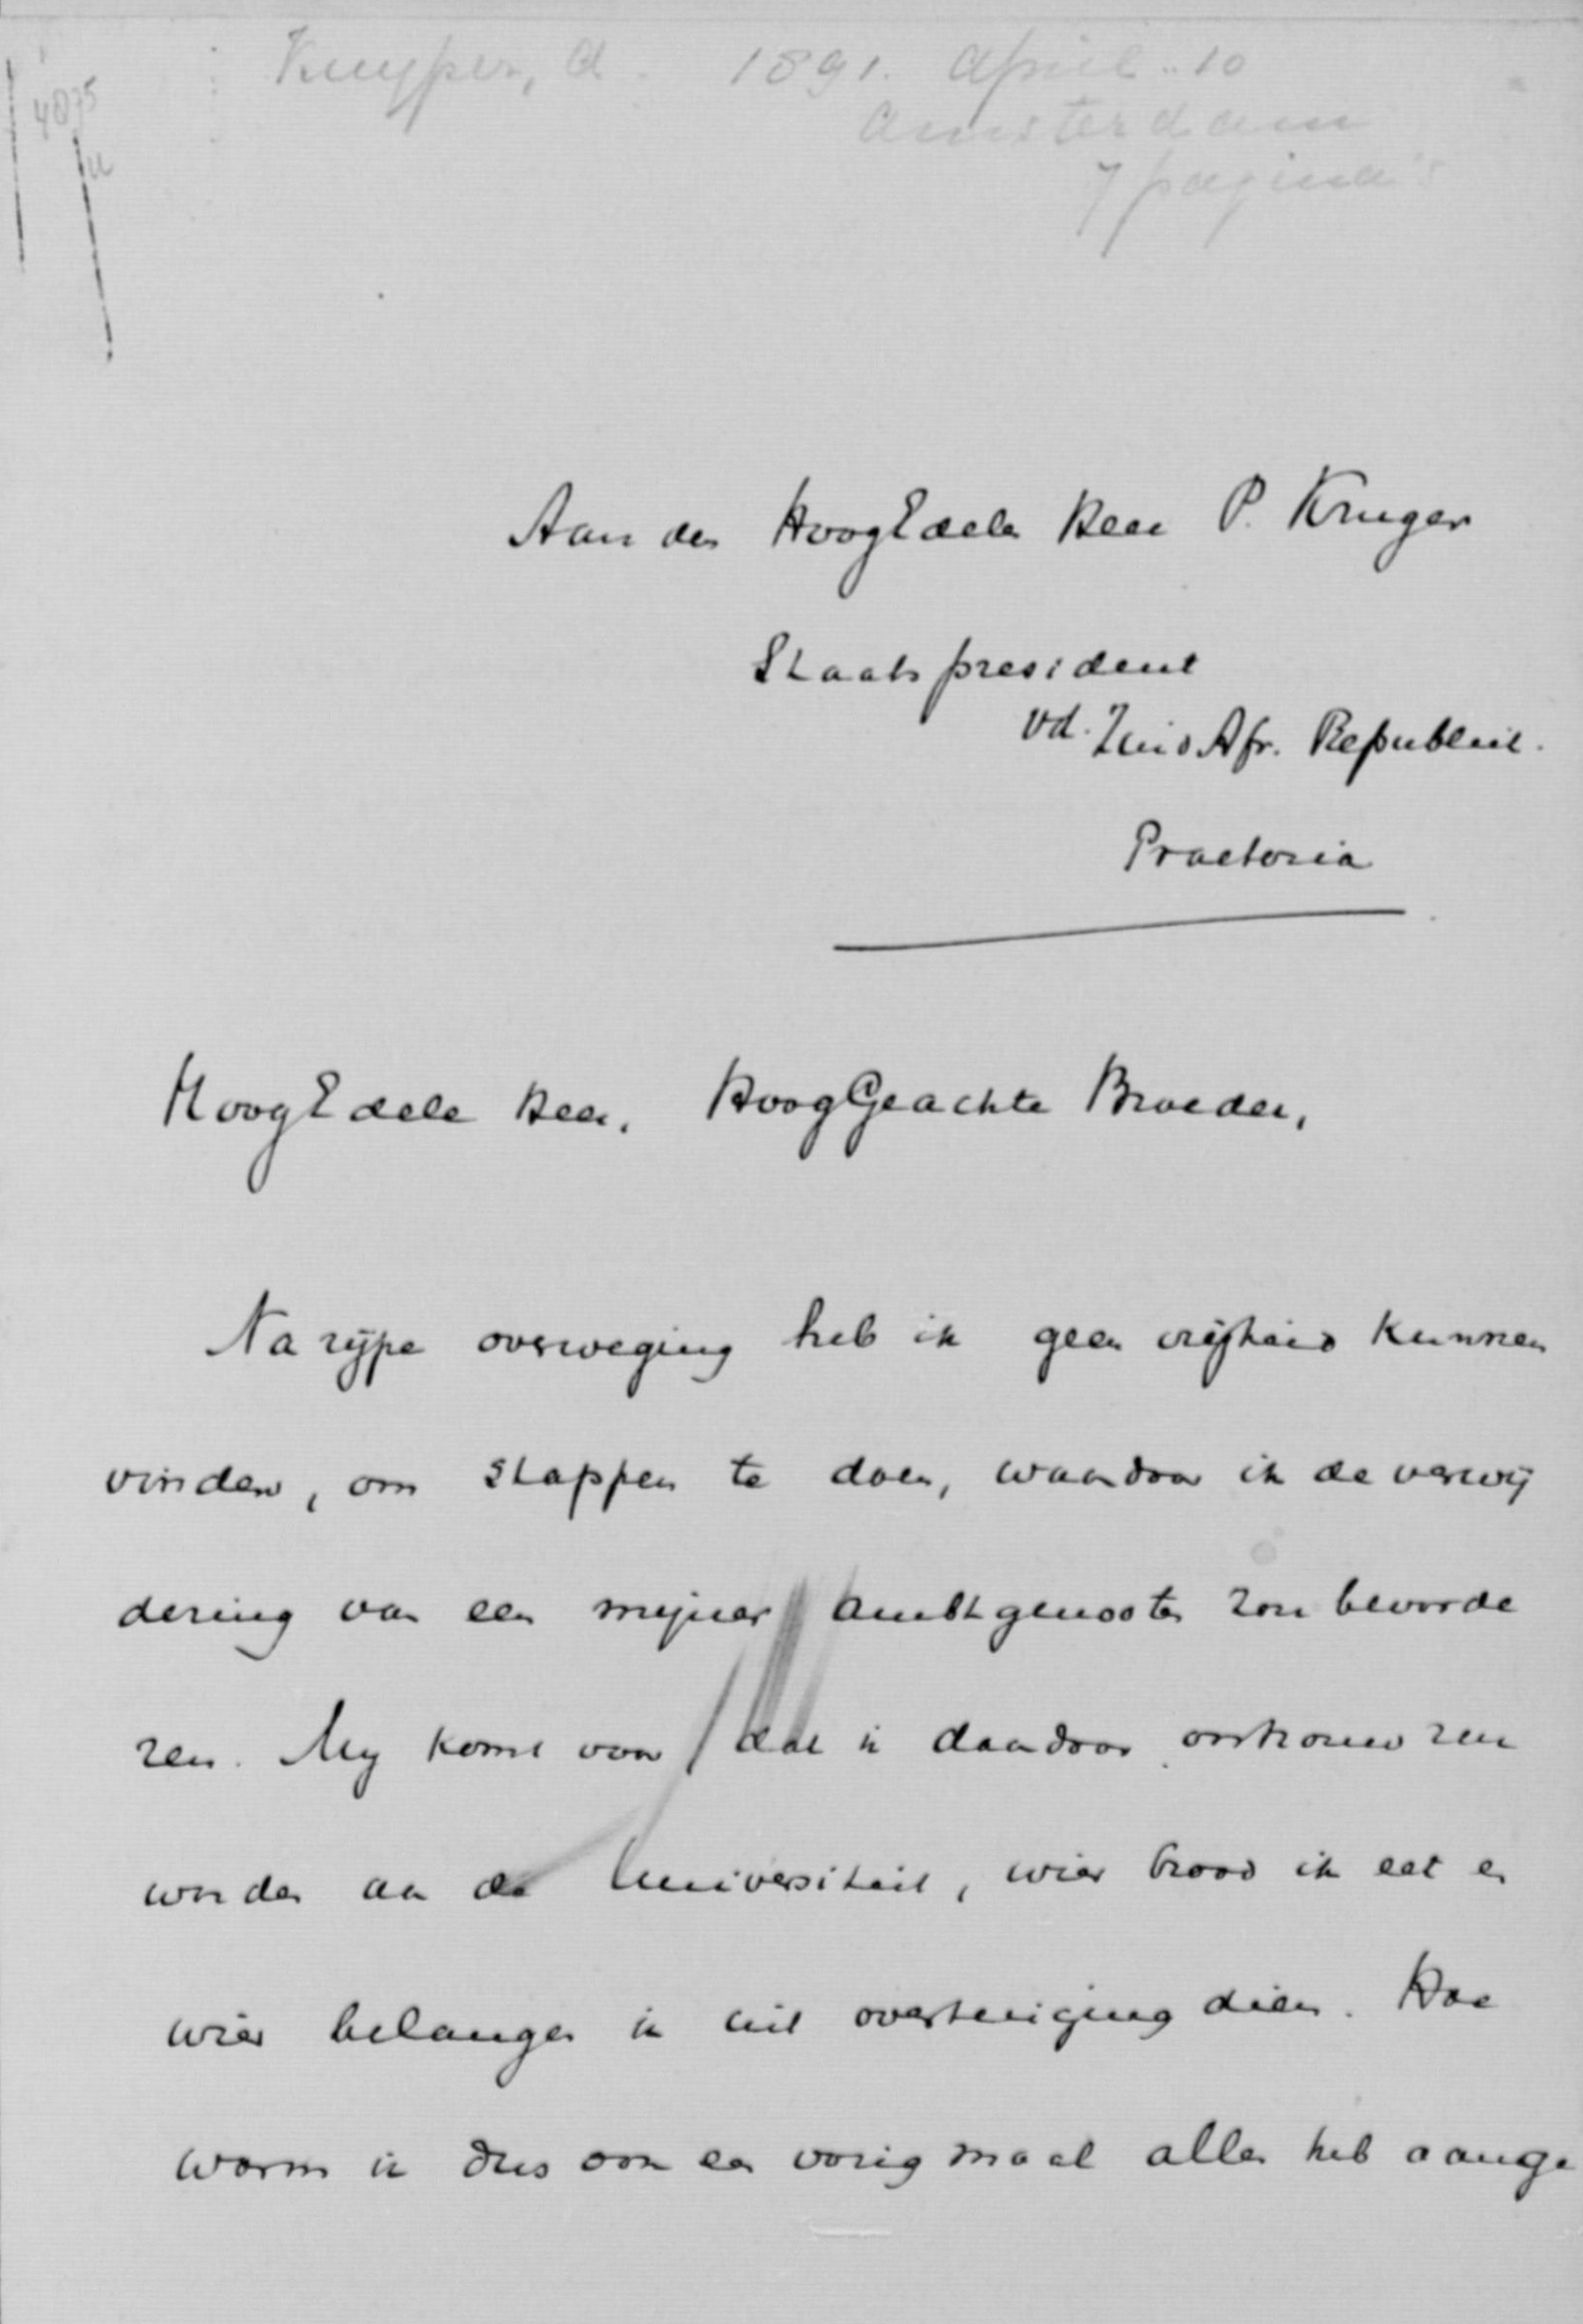 Kuyper, A. 1891. April 10
Amsterdam
7 pagina's
4075
Aan den HoogEdelen Heer P. Kruger
Staatspresident
vd. Zuid Afr. Republiek.
Praetoria
HoogEdele Heer, HoogGeachte Broeder,
Na rijpe overweging heb ik geen vrijheid kunnen
vinden, om stappen te doen, waardoor ik de verwij
dering van een mijner ambtgenooten zou bevorde
ren. Mij komt voor dat ik daardoor ontrouw zou
worden aan de Universiteit, wier brood ik eet en
wier belangen ik uit overtuiging dien. Hoe
warm ik dus ook een vorig maal alles heb aange